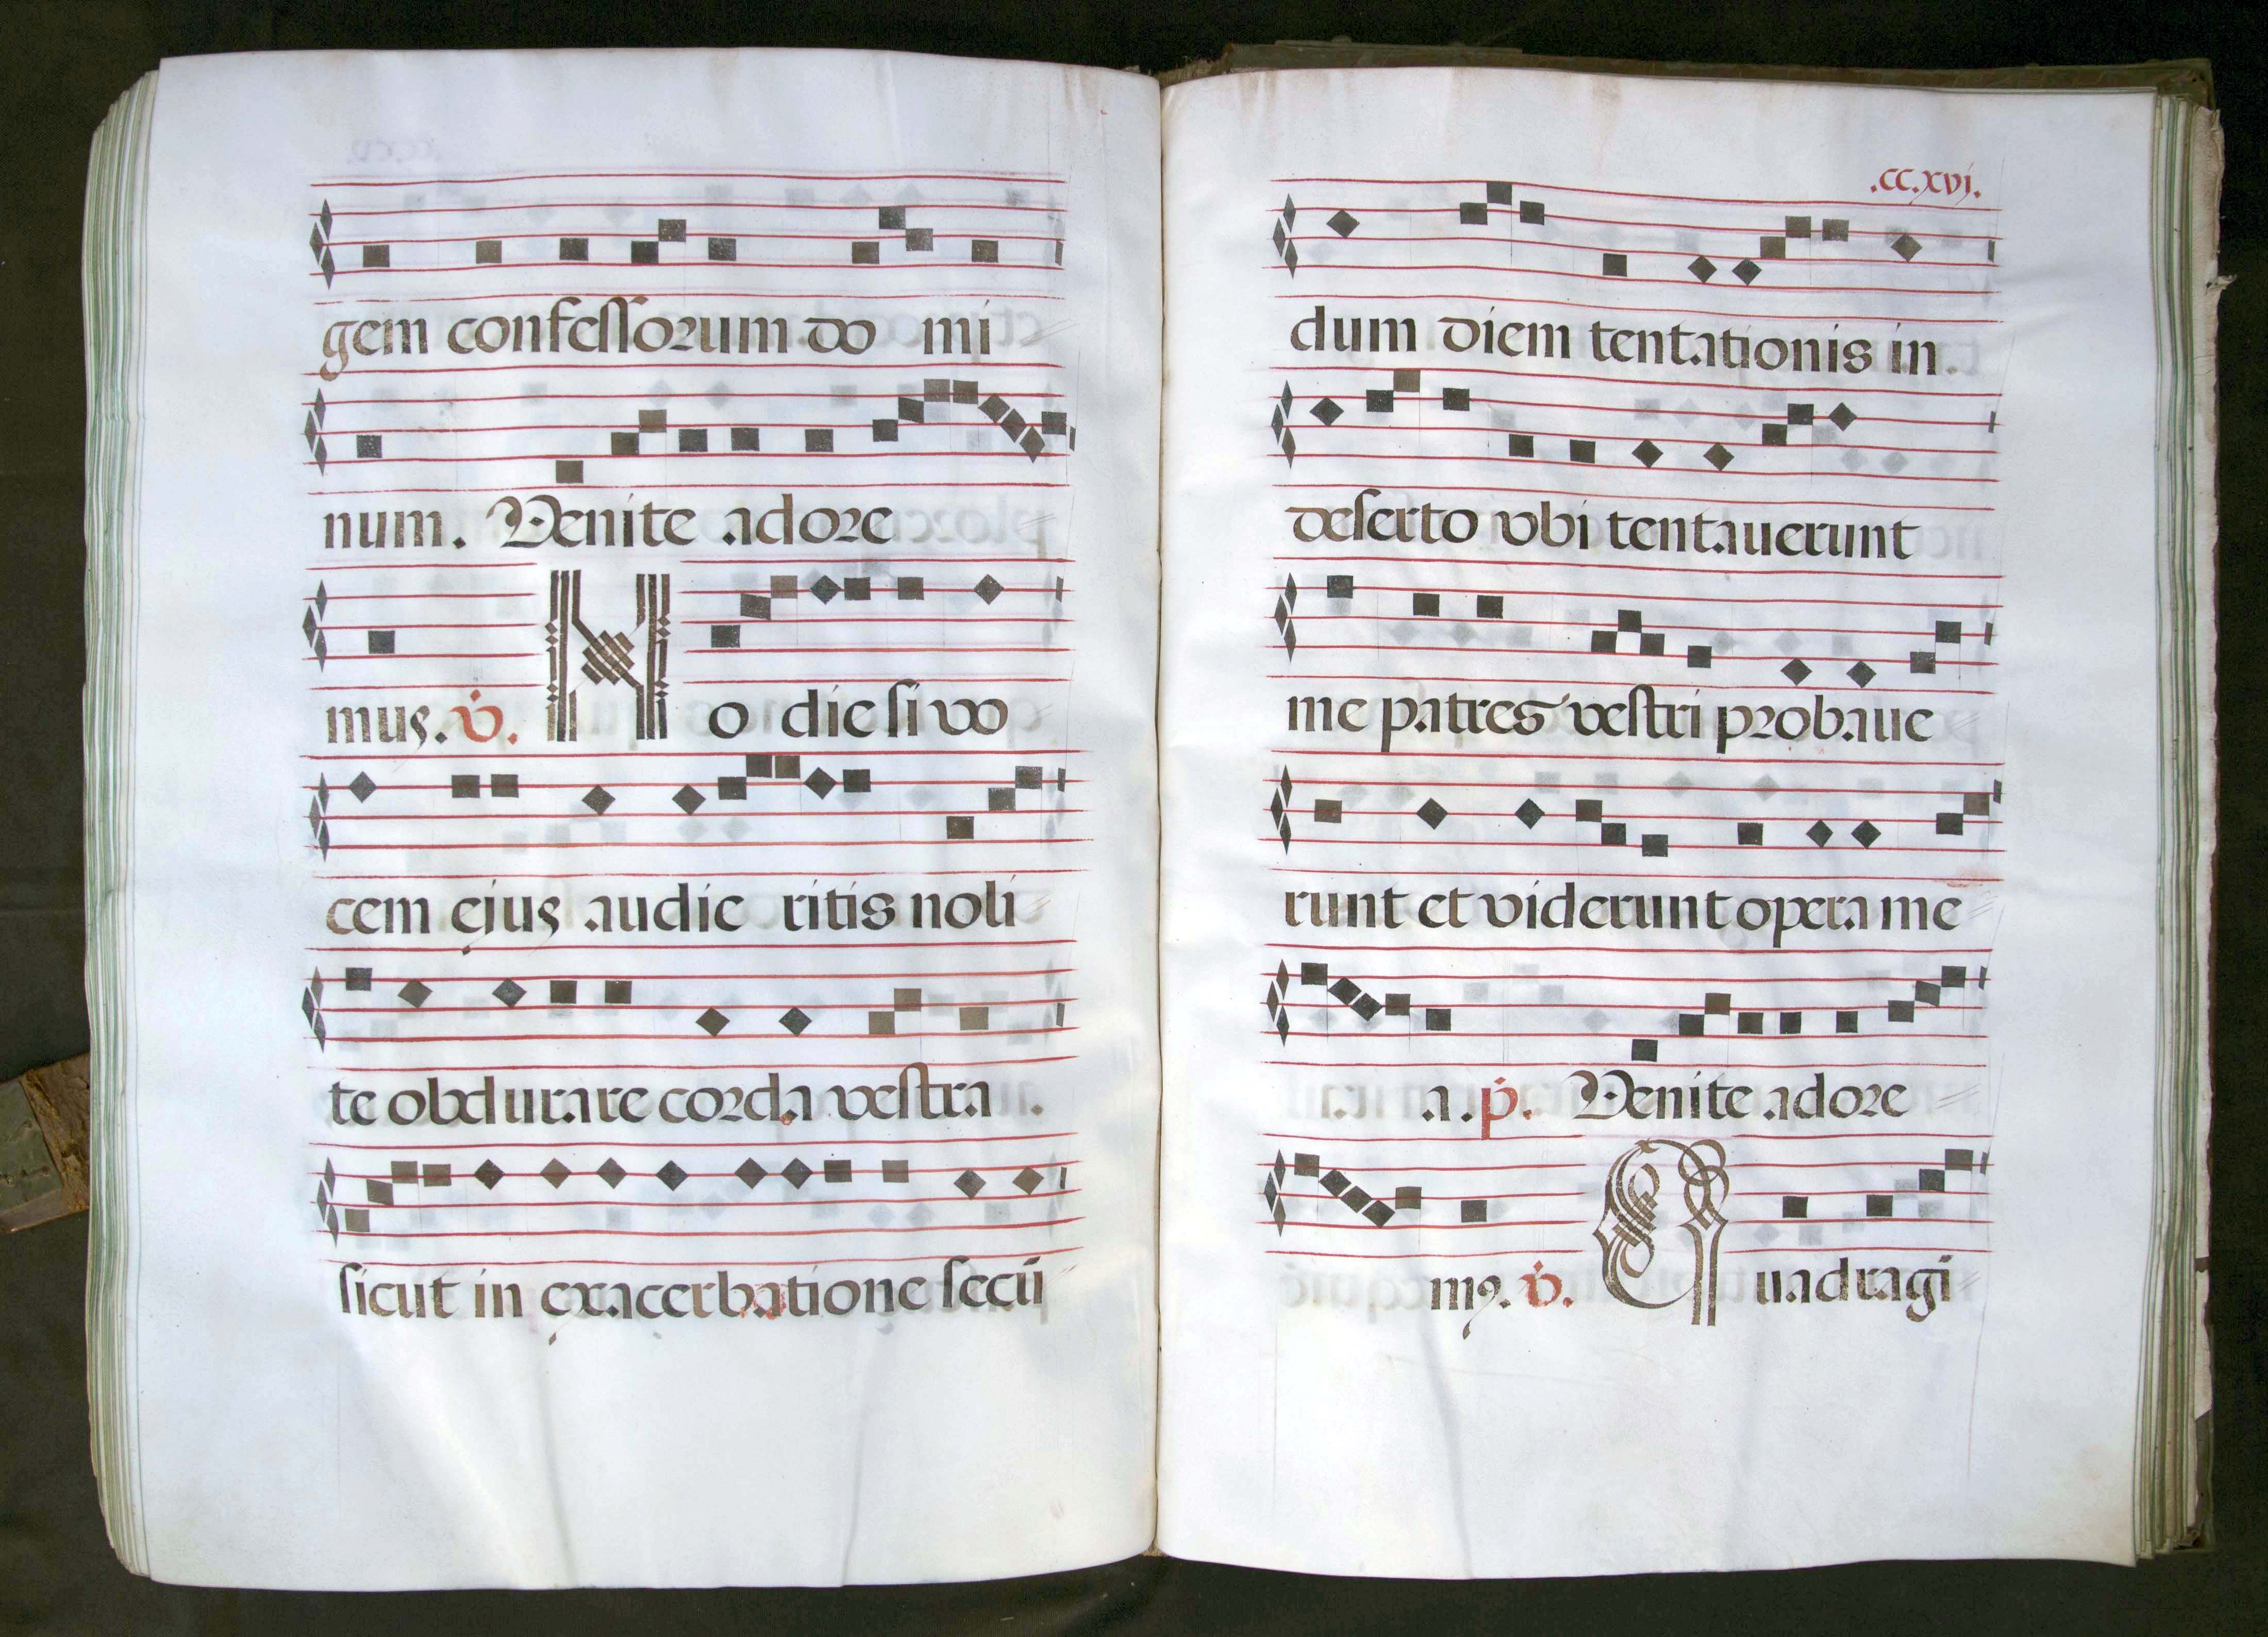 gem confessorum do mi
num. Venite adore
mus. v. Ho die si vo
cem ejus audie ritis noli
te obdurare corda vestra.
sicut in exacerbatione secū
.CC.xvj.
dum diem tentationis in
deserto vbi tentauerunt
me patres vestri probaue
runt et viderunt opera me
a. p. Venite adore
mꝰ. v. Quadragi